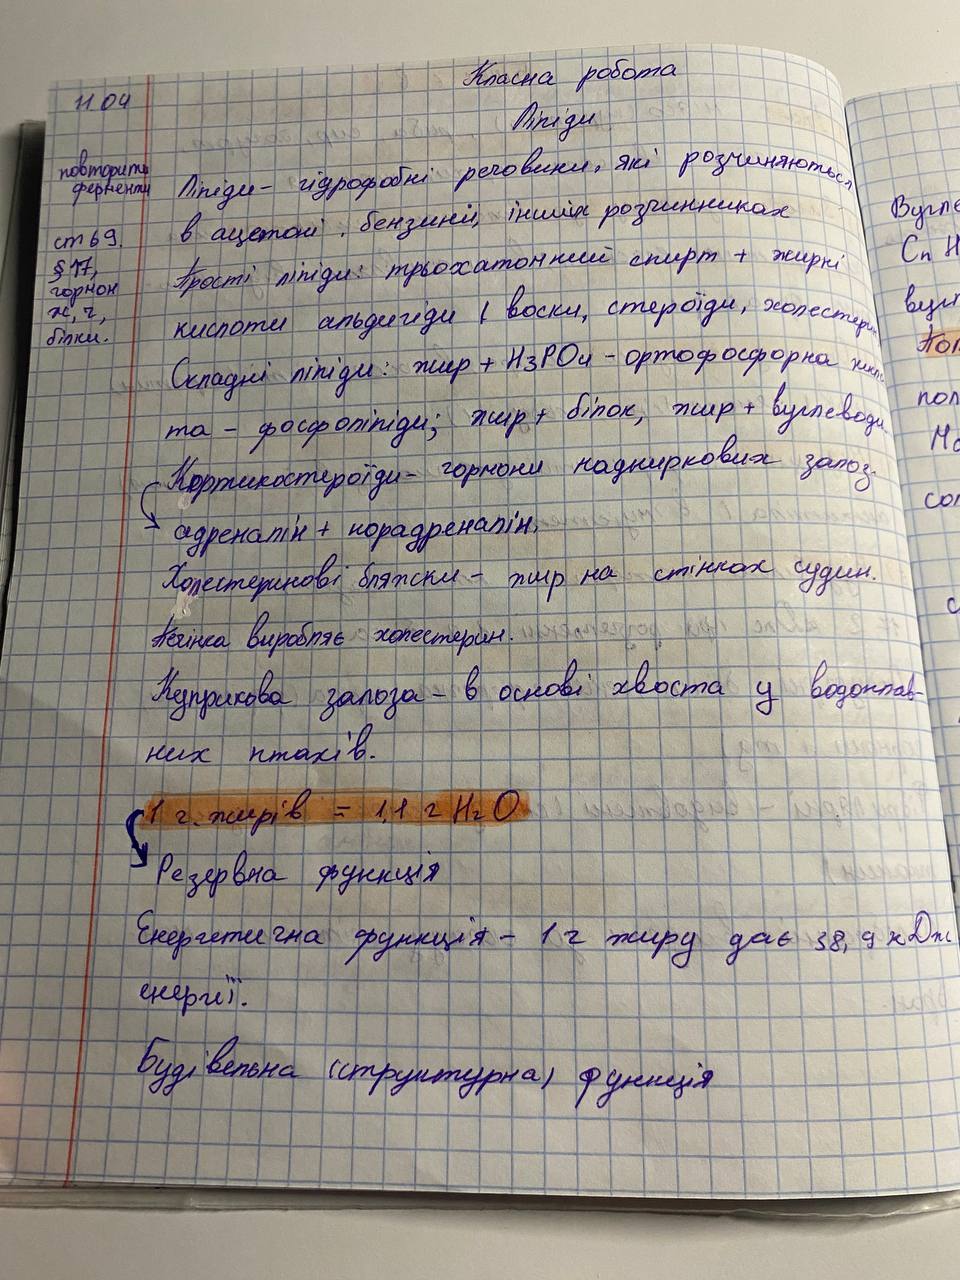 11.04
Класна робота
Ліпіди
повторити
ферменти
ст 69.
§ 17,
гормон
ж, г,
білки.
Ліпіди - гідрофобні речовини, які розчиняються
в ацетоні, бензині, інших розчинниках
Прості ліпіди: трьохатомний спирт + жирні
кислоти альдигіди / воски, стероїди, холестерин
Складні ліпіди: жир + H3PO4 - ортофосфорна кисло
та - фосфоліпіди; жир + білок, жир + вуглеводи.
Кортикостероїди - гормони надниркових залоз.
адреналін + норадреналін.
Холестеринові бляжки - жир на стінках судин.
Печінка виробляє холестерин.
Куприкова залоза - в основі хвоста у водоплав-
них птахів.
1 г. жирів = 1,1 г H2O
Резервна функція
Енергетична функція - 1 г жиру дає 38,9 кДж
енергії.
Будівельна (структурна) функція
Вугле
Cn H
вугл
Пол
пол
Мо
сол